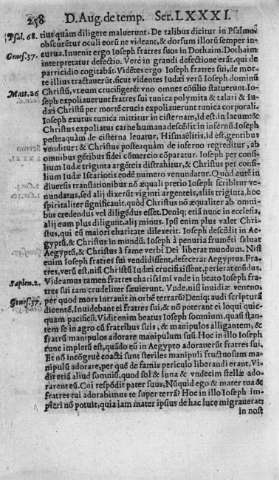 258 D. Aug. de temp. Ser. LXXXI.
Psal. 68. tius quàm diligere maluerunt. De talibus dicitur in Psalmo
obscurētur oculi eorū ne videant, & dorsum illorū semper in-
curua. Inuenit ergo Ioseph fratres suos in Dothaim. Dothaim
Genes. 37. interpretatur defectio. Verè in grandi defectione erāt, qui de
parricidio cogitabāt. Vidētes ergo Ioseph fratres sui, de mor-
te illius tractauerūt. sicut videntes Iudæi verū Ioseph dominū
Mat. 26 Christū, vt eum crucifigerēt vno omnes cōsilio statuerunt. Io-
seph expoliauerunt fratres sui tunica polymita & talari: & Iu-
dæi Christū per mortē crucis expoliauerunt tunica corporali.
Ioseph exutus tunica mittitur in cisternam, id est, in lacum: &
Christus expoliatus carne humana descēdit in infernū. Ioseph
postea quàm de cisterna leuatur, Hismaëlitis, id est gentibus
venditur: & Christus postea quàm de inferno regreditur, ab
omnibus gētibus fidei cōmercio cōparatur. Ioseph per consi-
lium Iudæ triginta argēteis distrahitur, & Christus per consi-
lium Iudæ Iscariotis eodē numero venundatur. Quod autē in
diuersis translationibus nō æquali pretio Ioseph scribitur ve-
nundatus, sed alij dixerūt viginti argenteis, alij triginta, hoc
spiritaliter significauit, quod Christus nō æqualiter ab omni-
bus credendus vel diligēdus esset. Deniq; etiā nunc in ecclesia,
alij eum plus diligunt, alij minus. Ipsi enim plus valet Chri-
stus, qui eū maiori charitate dilexerit. Ioseph descēdit in Ae-
gyptū, & Christus in mundū. Ioseph à penuria frumēti saluat
Aegyptū, & Christus à fame verbi Dei liberat mundum. Nisi
enim Ioseph fratres sui vendidissent, defecerat Aegyptus. Fra-
tres, verū est, nisi Christū Iudæi crucifixissent, perierat mūdus.
Videamus tamen fratres charissimi vnde in beato Ioseph fra-
Sapien. 2. tres sui tam crudeliter sæuierunt. Vnde, nisi inuidiæ veneno,
Genes. 37. per quod mors intrauit in orbē terrarū? Deniq; audi scripturā
dicentē, Inuidebant ei fratres sui, & nō poterant ei loqui quic-
quam pacificū. Vidit enim beatus Ioseph somnium, quasi stan-
tem se in agro cū fratribus suis, & manipulos alligantem, &
fratrū manipulos adorare manipulum suū. Hoc in illo Ioseph
tunc impletū est, quādo eū in Aegypto adorauerūt fratres sui.
Et nō incōgruè coacti sunt steriles manipuli fructuosum ma-
nipulū adorare, per quē de famis periculo liberandi erant. Vi-
dit etiā aliud somniū, quod sol & luna & vndecim stellæ ado-
rarent eū. Cui respōdit pater suus: Nūquid ego & mater tua &
fratres tui adorabimus te super terrā? Hoc in illo Ioseph im-
pleri nō potuit, quia iam mater ipsius de hac luce migrauerat
in nost